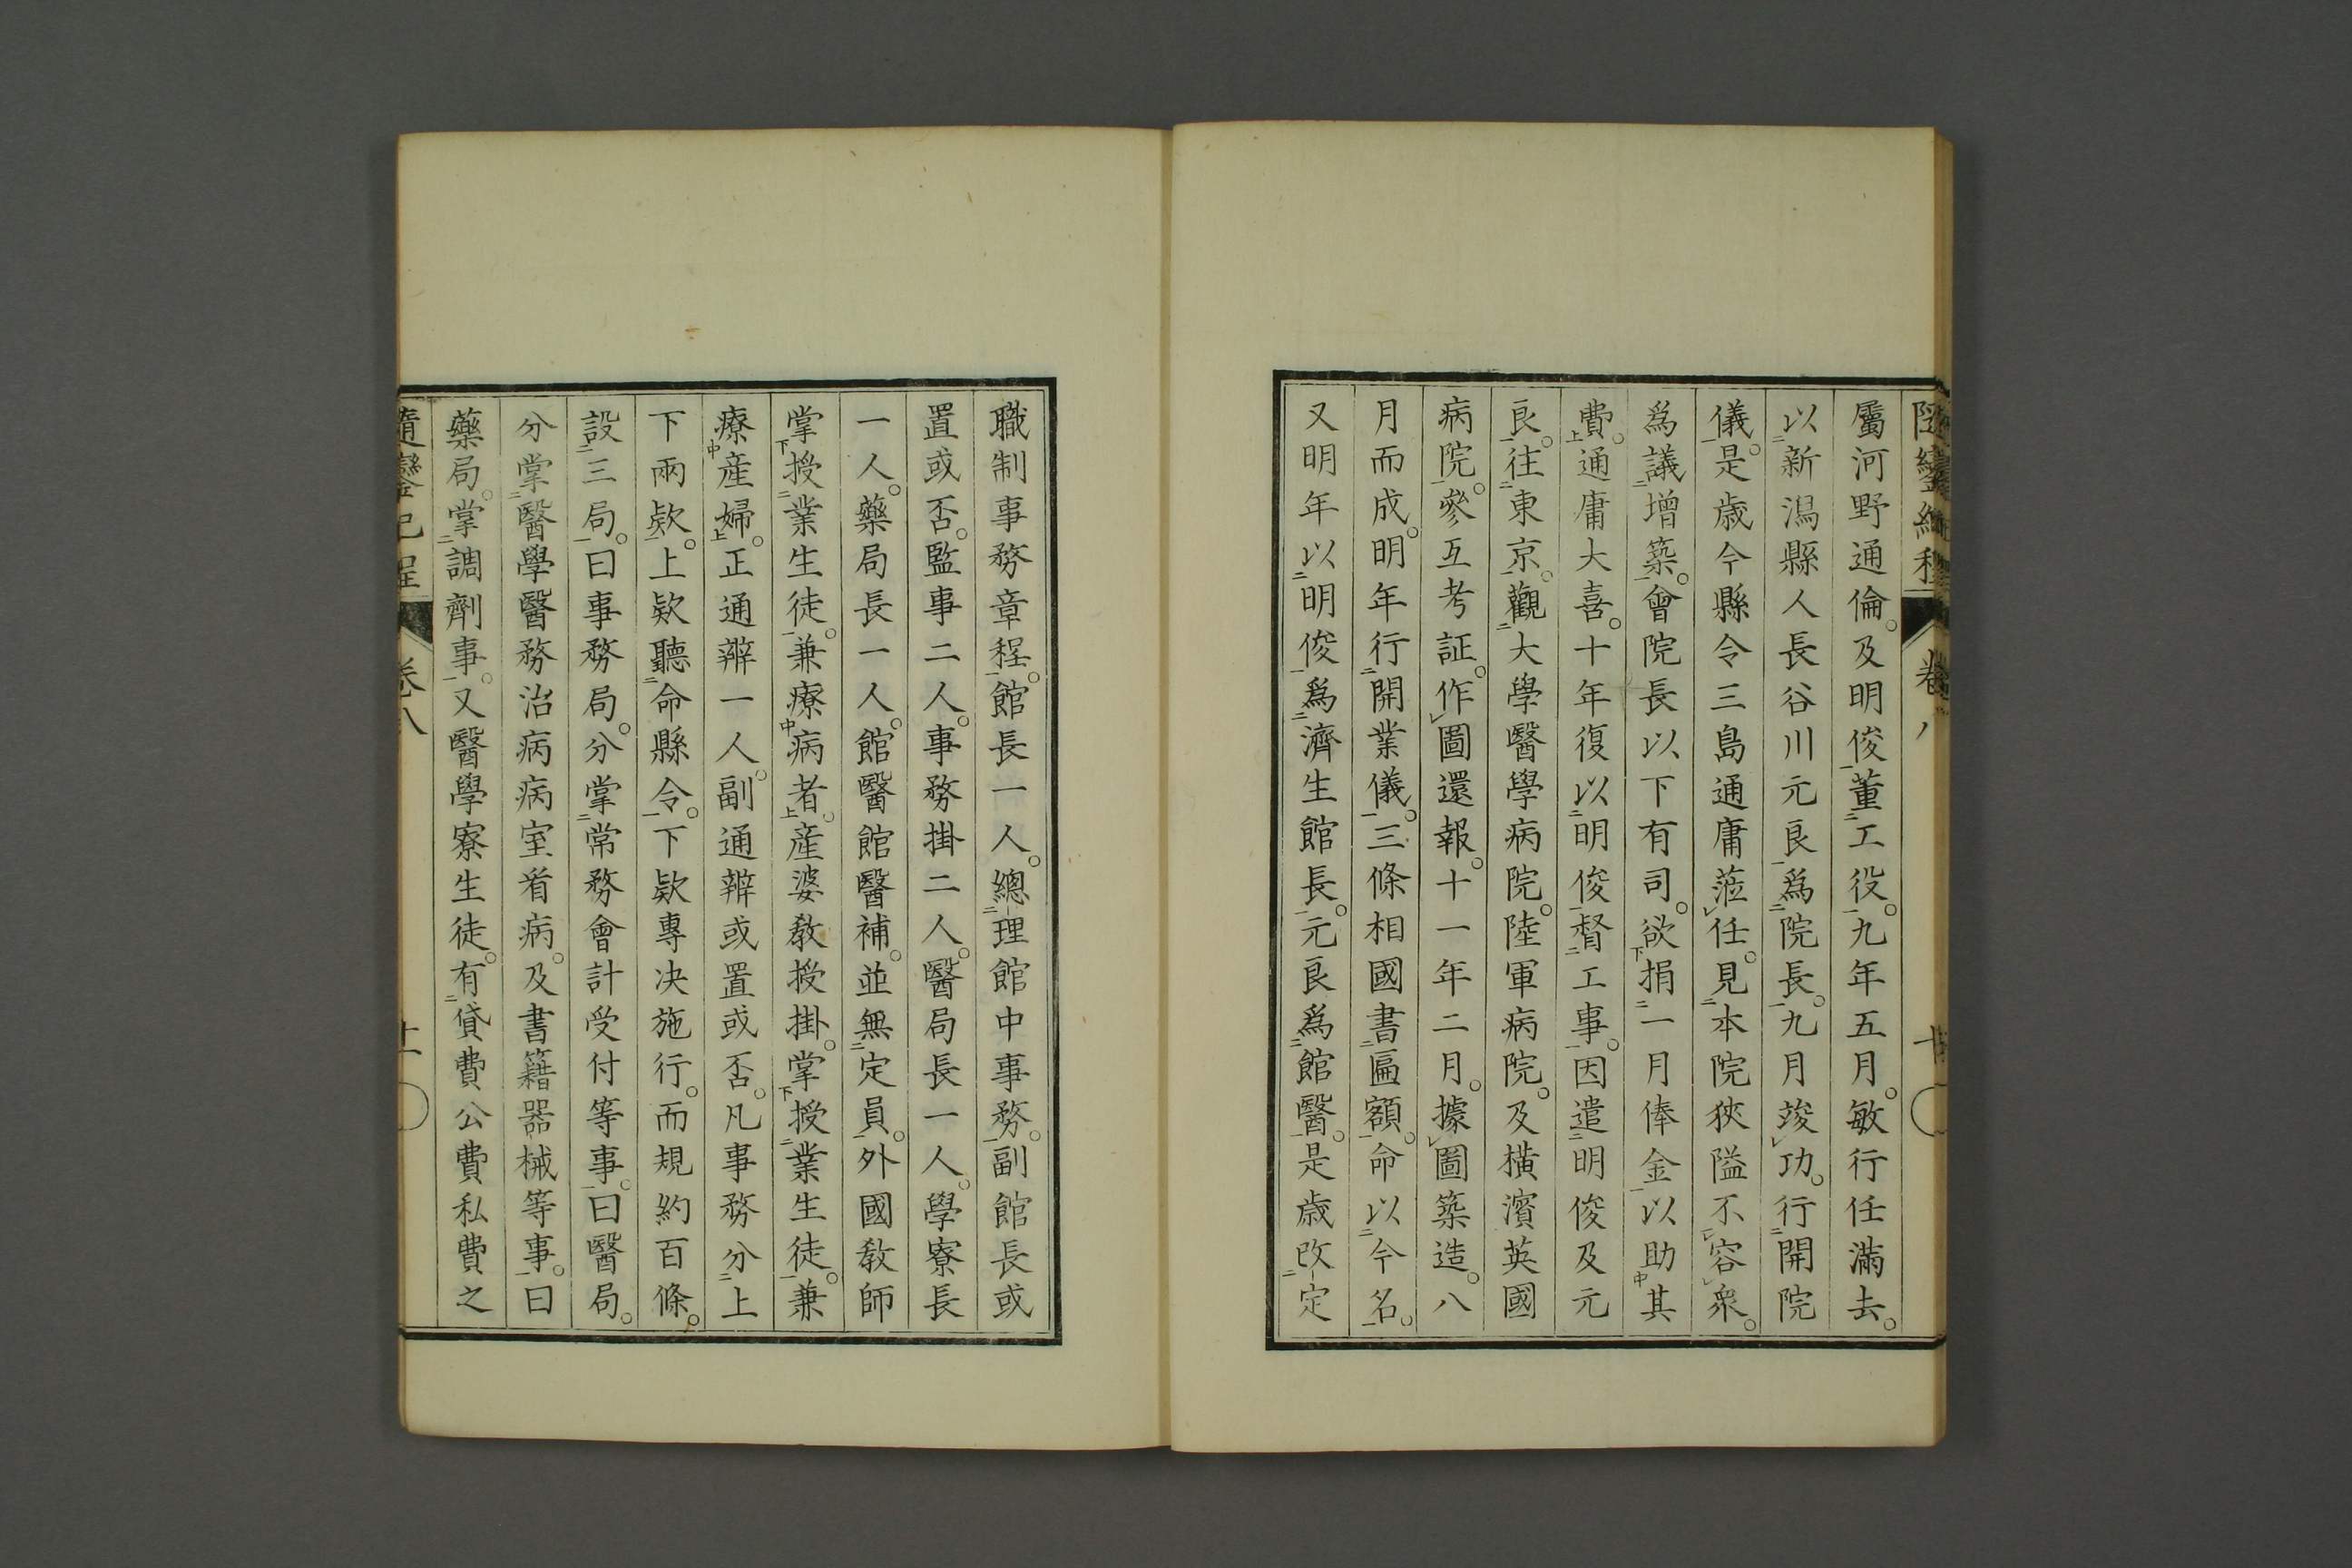 屬河野通倫。及明俊董工役。九年五月。敏行任滿去。
以新潟縣人長谷川元良爲院長。九月竣功。行開院
儀。是歳今縣令三島通庸蒞任。見本院狹隘不容衆。
爲議增築。會院長以下有司。欲捐一月俸金以助其
費。通庸大喜。十年復以明俊督工事。因遣明俊及元
良。往東京。觀大學醫學病院。陸軍病院。及横濱英國
病院。參互考証。作圖還報。十一年二月。據圖築造。八
月而成。明年行開業儀。三條相國書匾額。命以今名。
又明年以明俊爲濟生館長。元良爲館醫。是歳改定
職制事務章程。館長一人。總理館中事務。副館長或
置或否。監事二人。事務掛二人。醫局長一人。學寮長
一人。藥局長一人。館醫館醫補。並無定員。外國教師
掌授業生徒。兼療病者。産婆教授掛。掌授業生徒。兼
療産婦。正通辨一人。副通辨或置或否。凡事務分上
下兩欵。上欵聽命縣令。下欵專决施行。而規約百條。
設三局。曰事務局。分掌常務會計受付等事。曰醫局。
分掌醫學醫務治病病室看病。及書籍器械等事。曰
藥局。掌調劑事。又醫學寮生徒。有貸費公費私費之
隨鑾紀程 卷八